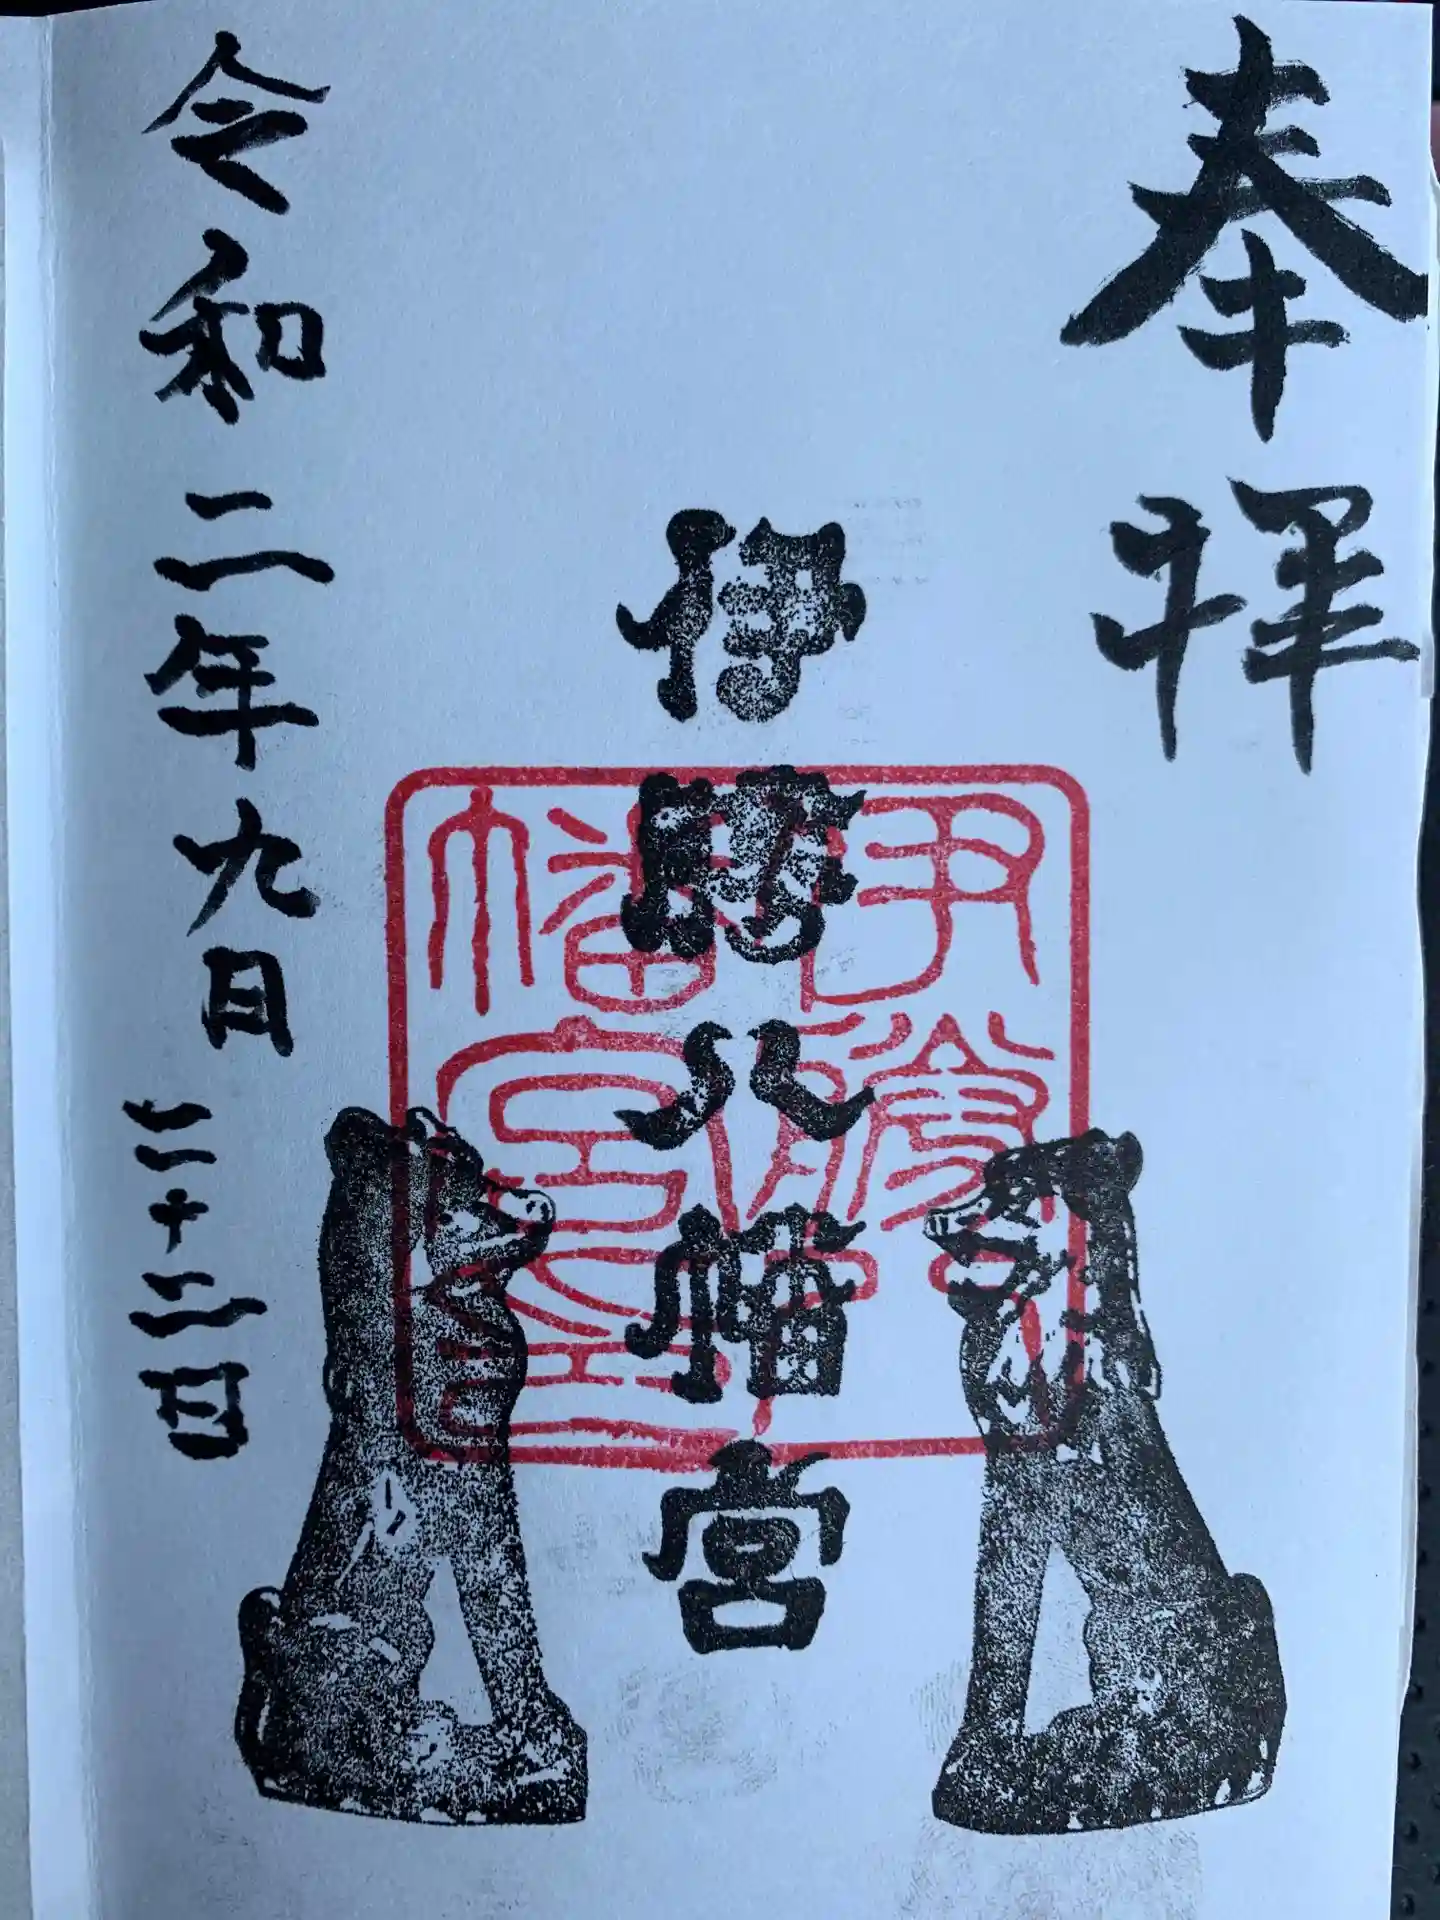 奉拝
伊勝八幡宮
伊勝八
幡宮
令和二年九月二十二日